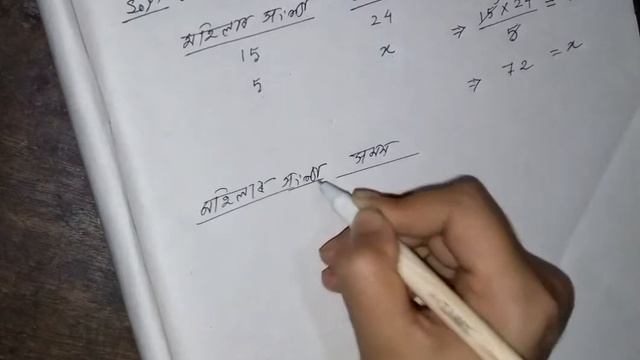 Sol
মহিলাৰ সংখ্যা
15 24 ⇒ 15 × 24 / 5 =
5 x ⇒ 72 = x
মহিলাৰ সংখ্যা সময়